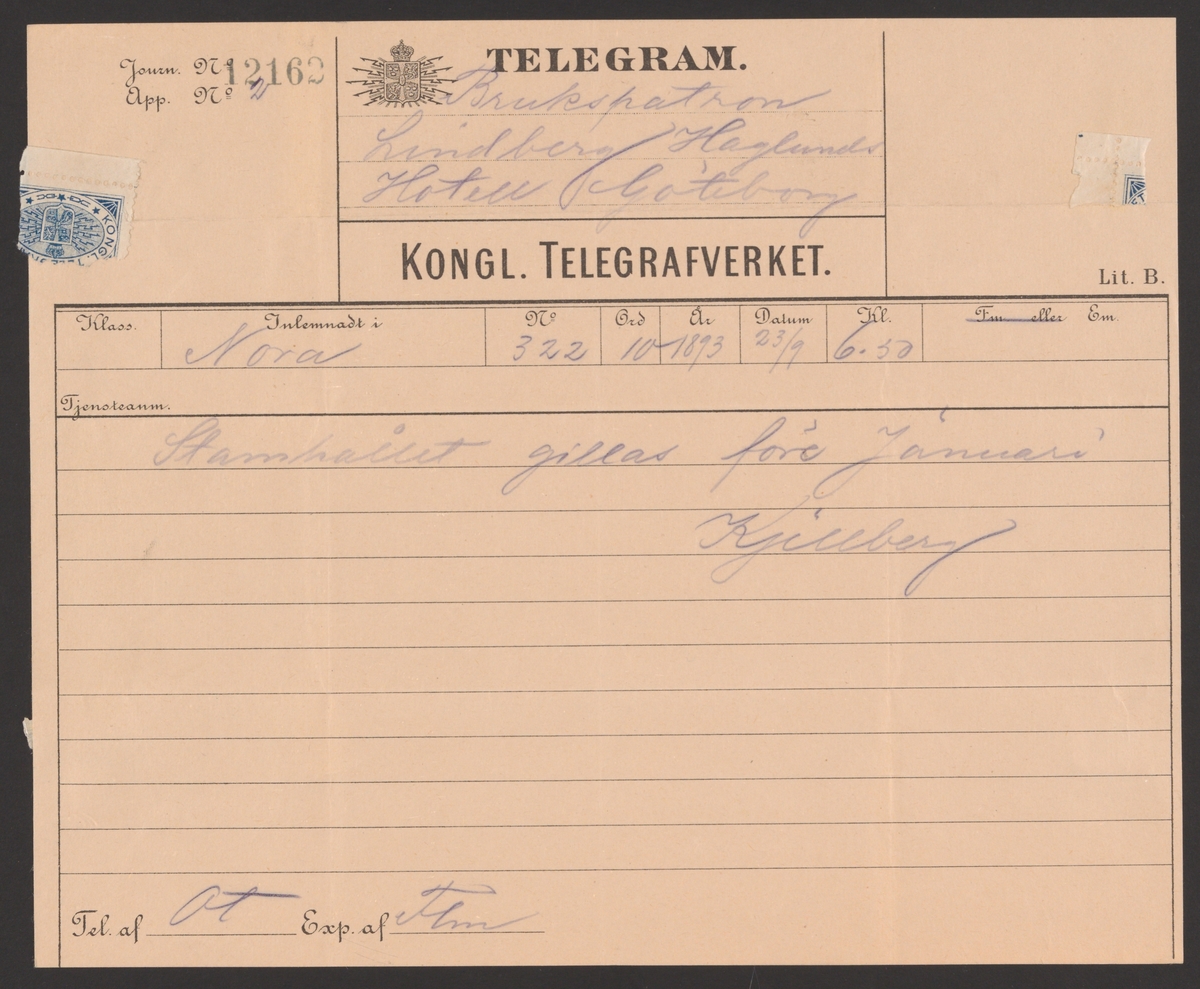 Journ. Nº 12162
App. Nº 2
TELEGRAM.
Brukspatron
Lindberg Haglunds
Hotell Göteborg
KONGL. TELEGRAFVERKET.
Lit. B.
KONGL.
Klass. Inlemnadt i Nº Ord År Datum Kl. Fm eller Em.
Nora 322 10 1893 23/9 6.50
Tjensteanm.
Stamhållet gillas före Januari
Kjellberg
Tel. af Ot Exp. af